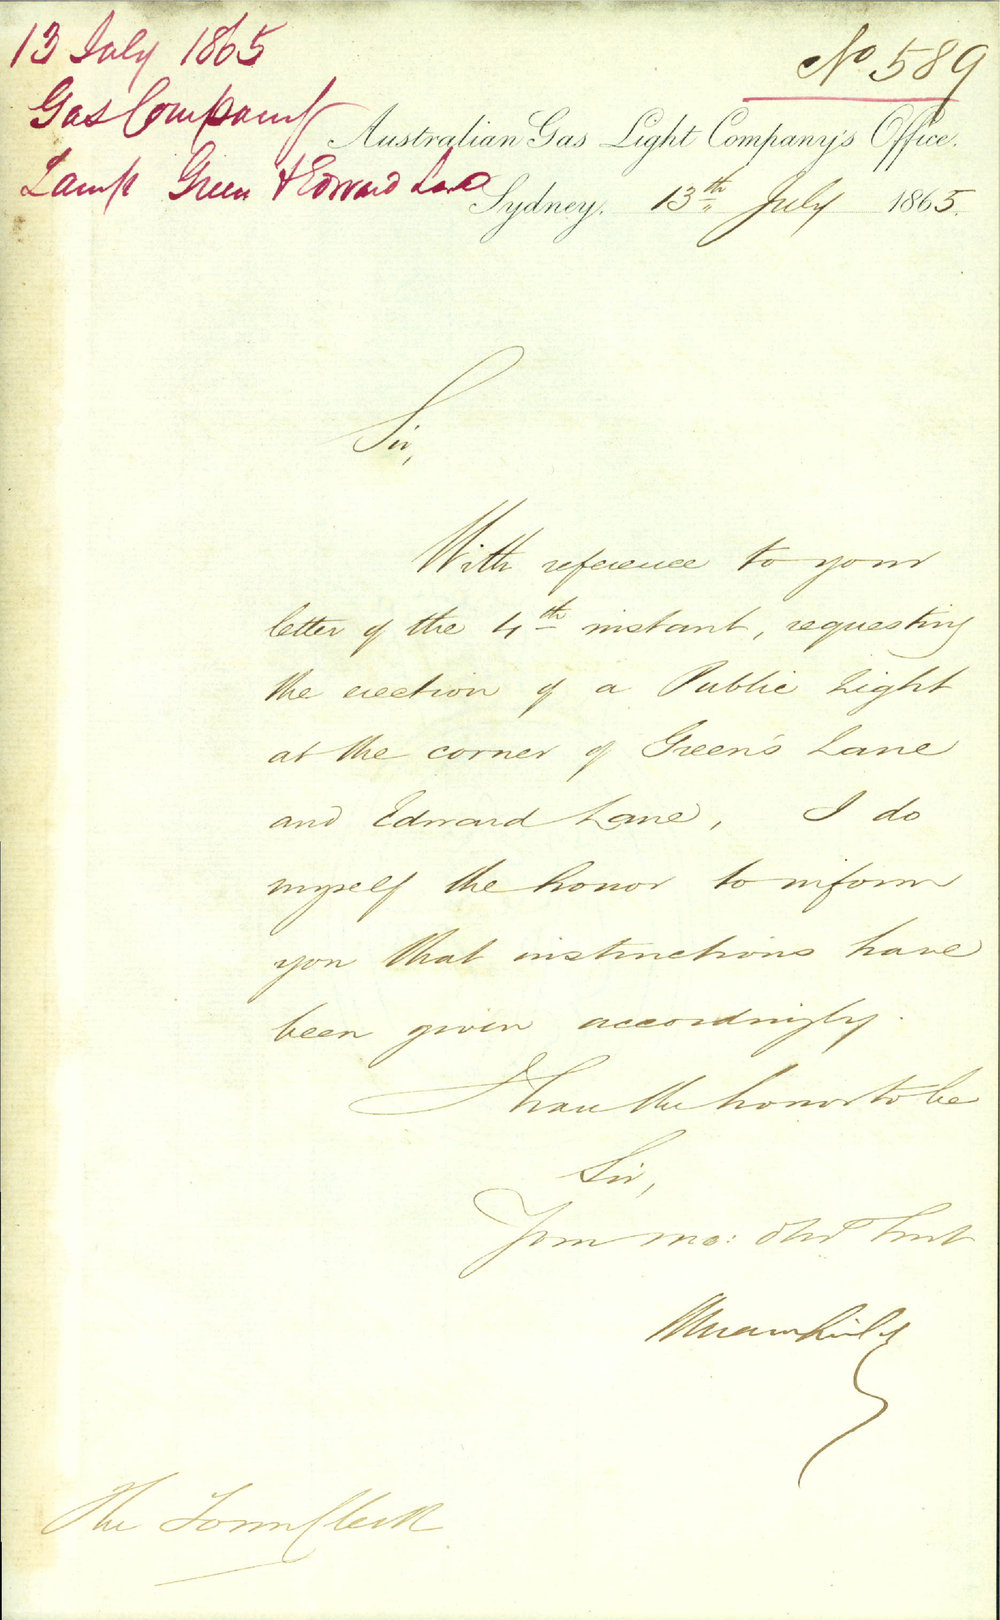 13 July 1865
Gas Company
Lamp Green & Edward Lane
No 589
Australian Gas Light Company's Office.
Sydney. 13th July 1865.
Sir,
With reference to your
letter of the 4th instant, requesting
the erection of a Public Light
at the corner of Green's Lane
and Edward Lane, I do
myself the honor to inform
you that instructions have
been given accordingly.
I have the honor to be
Sir,
Your mo: obt Servt
The Town Clerk